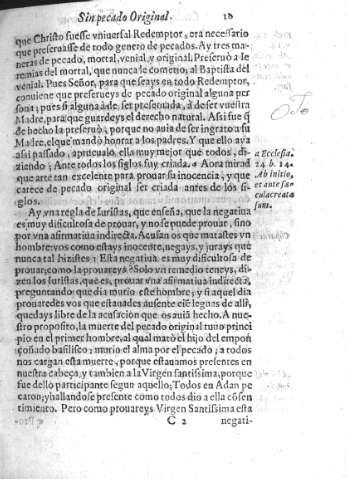 Sin pecado Original. 10
que Christo fuesse vniuersal Redemptor, era necessario
que preseruasse de todo genero de pecados. Ay tres ma-
neras de pecado, mortal, venial, y original. Preseruò a Ie
remias del mortal, que nunca le cometio, al Baptista del
venial. Pues Señor, para que seays en todo Redemptor,
conuiene que preserueys de pecado original alguna per
sona; pues si alguna ha de ser preseruada, à de ser vuestra
Madre, para que guardeys el derecho natural. Assi fue q̃
de hecho la preseruò, porque no auia de ser ingrato a su
Madre, el que mandò honrar a los padres. Y que ello aya
assi passado, aprueualo ella muy mejor que todos, di-
ziendo; Ante todos los siglos fuy criada. a Aora mirad
que arte tan excelente para prouar su inocencia, y que
carece de pecado original ser criada antes de los si-
glos.
a Ecclesia.
24. b. 14.
Ab initio,
et ante sæ
cula creata
sum.
Ay vna regla de Iuristas, que enseña, que la negatiua
es muy dificultosa de prouar, y no se puede prouar, sino
por vna afirmatiua indirecta. Acusan os que matastes vn
hombre: vos como estays inocente, negays, y jurays que
nunca tal hizistes; Esta negatiua es muy dificultosa de
prouar, como la prouareys? Solo vn remedio teneys, di-
zen los Iuristas, que es, prouar vna afirmatiua indirecta,
preguntando que dia murio este hombre; y si aquel dia
prouaredes vos que estauades ausente ciẽ leguas de alli,
quedays libre de la acusacion que os auiã hecho. A nue-
stro proposito, la muerte del pecado original tuuo princi
pio en el primer hombre, al qual matò el hijo del empon
çoñado basilisco; murio el alma por el pecado; a todos
nos cargan esta muerte, porque estauamos presentes en
nuestra cabeça, y tambien a la Virgen santissima, porque
fue dello participante segun aquello; Todos en Adan pe
caron; y hallandose presente como todos dio a ella cõsen
timiento. Pero como prouareys Virgen Santissima esta
C 2 negati-